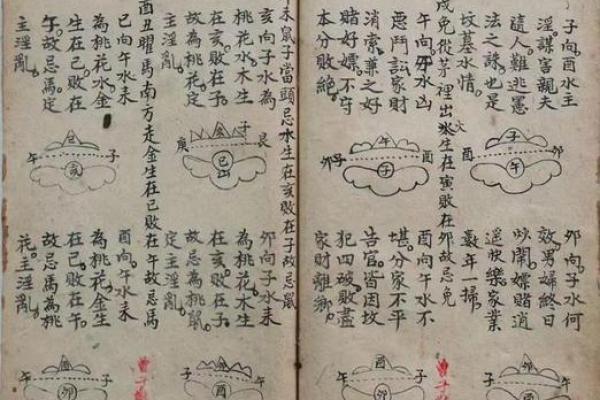 子向酉水主
淫謀害親夫
人難逃憲
法之誅也是
坟墓水情。
子
午
卯
酉
卯向子水何
效。男婦終日
吵鬧。嫖賭消
遙快樂家業
數年一掃
子
午
酉
卯
戌兔從茅裡出水生在寅敗在卯故忌兔
午向卯水凶
惡鬥訟家財
消索兼之好
賭好嫖。不守
本分敗絶。
午
子
卯
酉
酉向午水不
堪。分家不平
告官。皆因坟
犯四破敗盡
家財離鄉。
午
子
酉
卯
未鼠子當頭忌水生在亥敗在子故忌鼠
亥向子水為
桃花水木生
在亥。敗在子。
故為桃花。定
主淫亂。
艮
子
庚
卯向子水来
為桃花水木生
在亥敗在子。
故忌為桃鼠。
定主淫亂。
子
午
酉
酉丑曜馬南方走金生在巳敗在午故忌馬
巳向午水未
為桃花水金
生在巳。敗在
午。故忌馬。定
主淫亂。
子
午
亥
酉向午水来
為桃花。金生
在巳。敗在午。
故忌馬為桃
花。主淫亂。
子
午
酉
卯